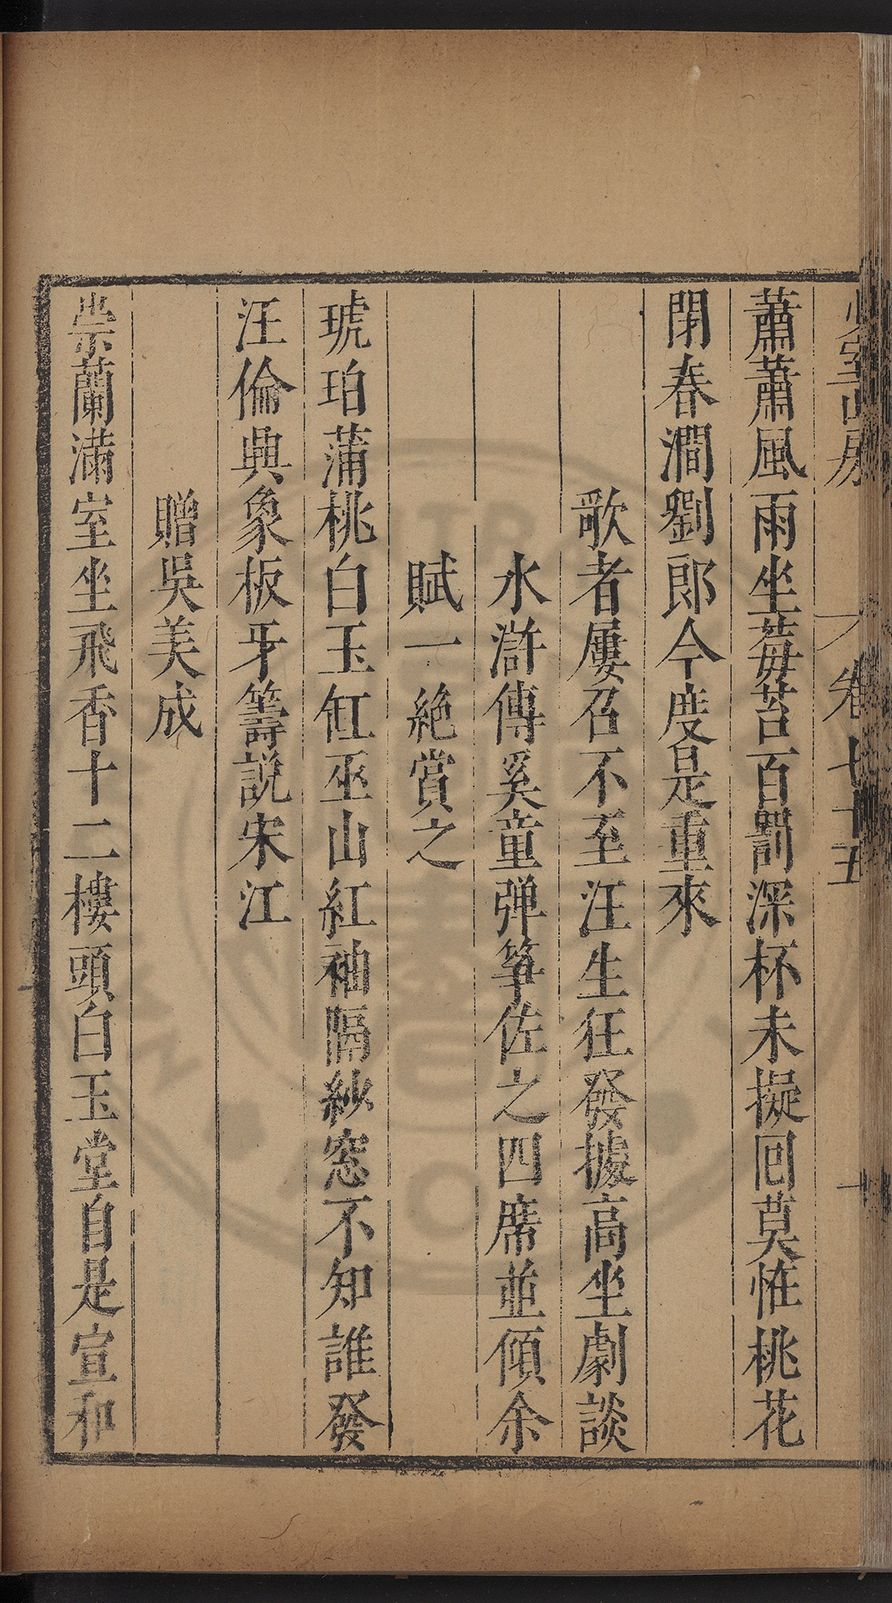 室山房 卷七十五
蕭蕭風雨坐莓苔百罰深杯未擬回莫惟桃花
閉春澗劉郎今度是重來
歌者屢召不至汪生狂發據高坐劇談
水滸傳奚童弹箏佐之四席並傾余
賦一絶賞之
琥珀蒲桃白玉缸巫山紅袖隔紗窓不知誰發
汪倫興象板牙籌説宋江
贈吳美成
崇蘭滿室坐飛香十二樓頭白玉堂自是宣和